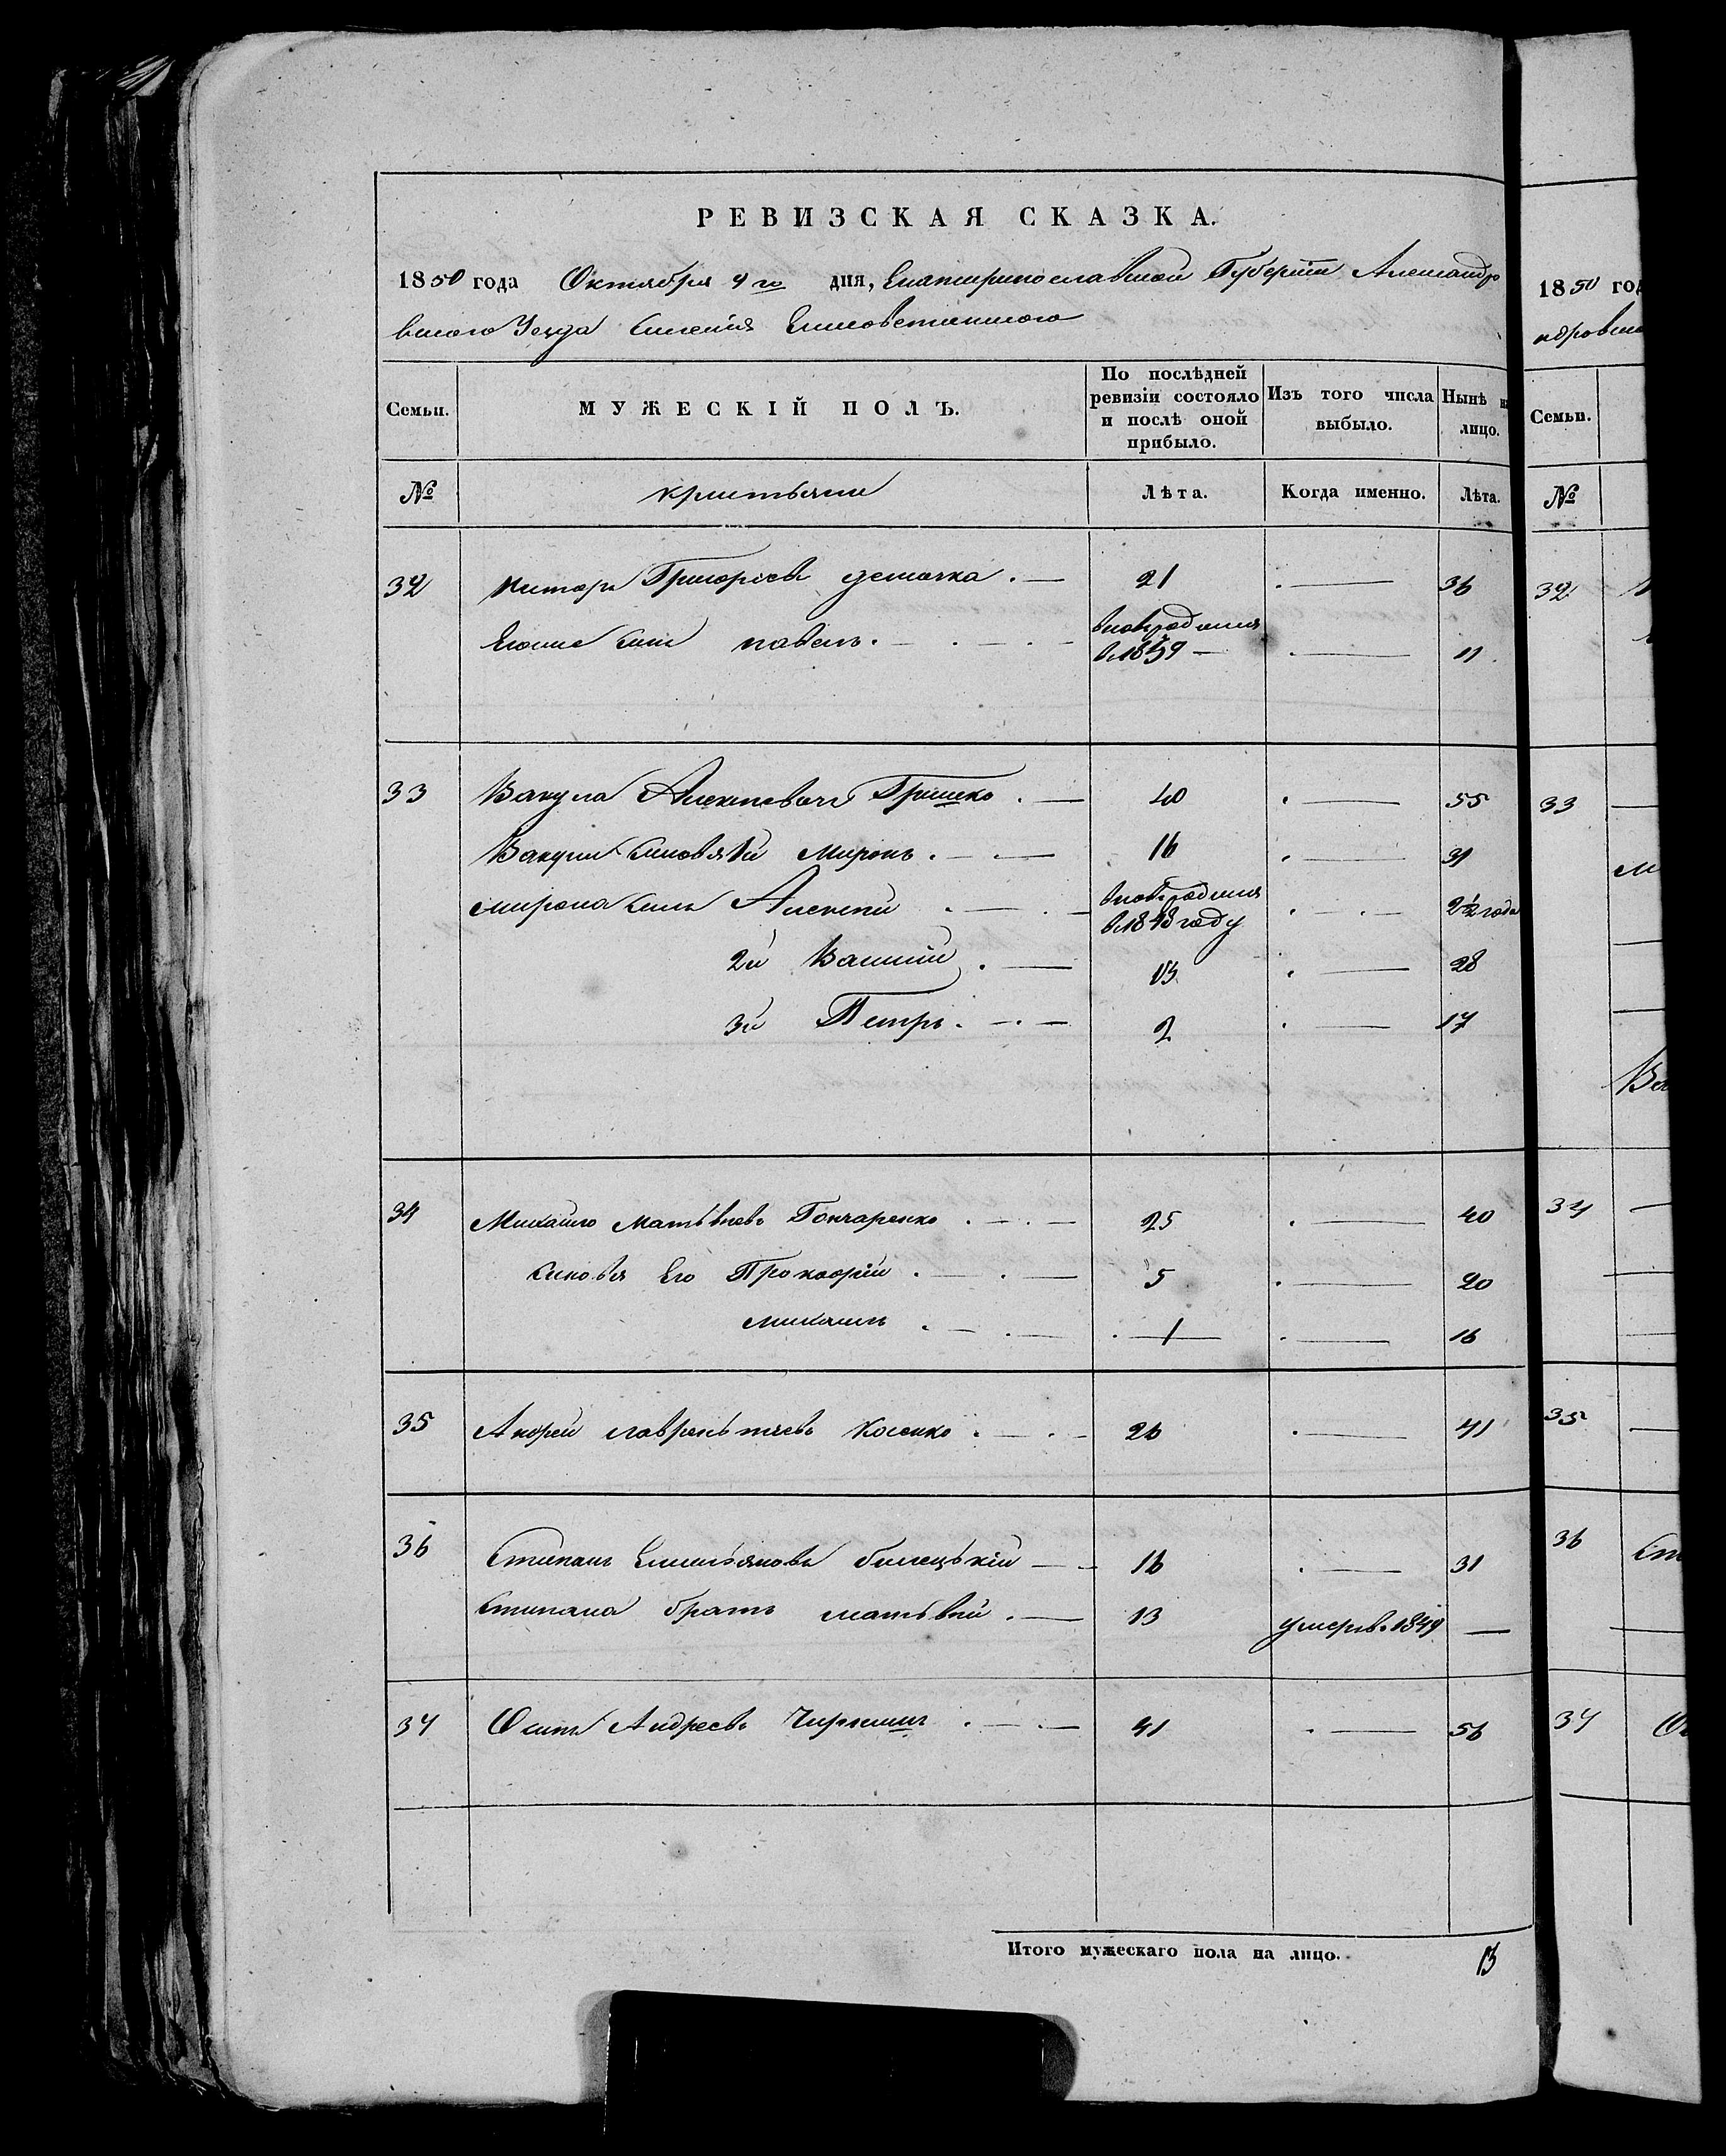 РЕВИЗСКАЯ СКАЗКА.
1850 года Октября 4го дня, Екатеринославской Губернiи Александро
вского Уезда Имения Елисоветинского
Семьи. МУЖЕСКІЙ ПОЛЪ. По послѣдней ревизіи состояло и послѣ оной прибыло. Изъ того числа выбыло. Нынѣ на лицо.
№ Крестьяне Лѣта. Когда именно. Лѣта.
32 Григорьев . — 21 . — 36
сын павелъ . — . — вновь рожден
в 1839 — . — 11.
33 Вакула Алексеевичъ Гришко . — 40 . — 55
Вакулы сыновья 1й Миронъ . — . — 16 . — 31
мирона сынъ Алексей . — . — вновь рожден
в 1848 году . — . — 2 1/2 года
2й Василий . — 13 . — 28
3й Петръ . — . — 2 . — 17
34 Михайло Матвѣевъ Гончаренко . — . — 25 . — 40
сыновья Его Прокофiй . — . — 5 . — 20
михаилъ . — . — . 1 . — 16
35 Андрей лаврентьевъ Косенко . — . — 26 . — 41
36 Степанъ Емельяновъ билецькiй — 16 . — 31
Степана братъ матвѣй . — 13 умер в. 1849 —
37 Осипъ Андреевъ . — . — 41 . — 56
Итого мужескаго пола на лицо. 13
1850 год
ндровск
Семьи.
№
32
33
34
35
36
37